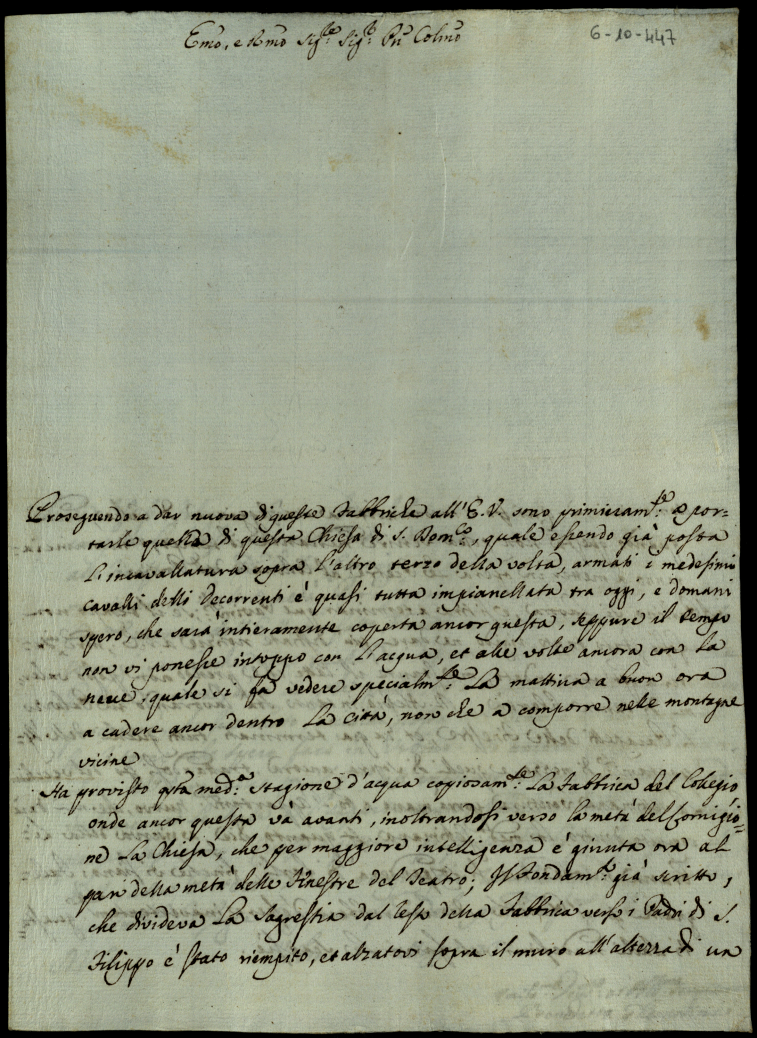 Emo, e Rmo Sig.re Sig.r Pn Colmo
6-10-447
Proseguendo a dar nuova di queste Fabbriche all'E.V. sono primieram.te a por-
tarle quella di questa Chiesa di S. Dom.co, quale essendo già posta
l'incavallatura sopra l'altro terzo della volta, armati i medesimi
cavalli delli Decorrenti è quasi tutta impianellata tra oggi, e domani
spero, che sarà intieramente coperta ancor questa, seppure il tempo
non vi ponesse intoppo con l'acqua, et alle volte ancora con la
neve, quale si fà vedere specialm.te la mattina a buon ora
a cadere ancor dentro la Città, non che a comporre nelle montagne
vicine
Ha provisto qsta med.a stagione d'acqua copiosam.te la Fabbrica del Collegio
onde ancor questa và avanti, inoltrandosi verso la metà del Corniglio=
ne la Chiesa, che per maggiore intelligenza è giunta ora al
pari della metà delle Finestre del Teatro; Il Fondam.to già scritto,
che divideva la Sagrestia dal resto della Fabbrica verso i Padri di S.
Filippo è stato riempito, et alzatovi sopra il muro all'altezza di un